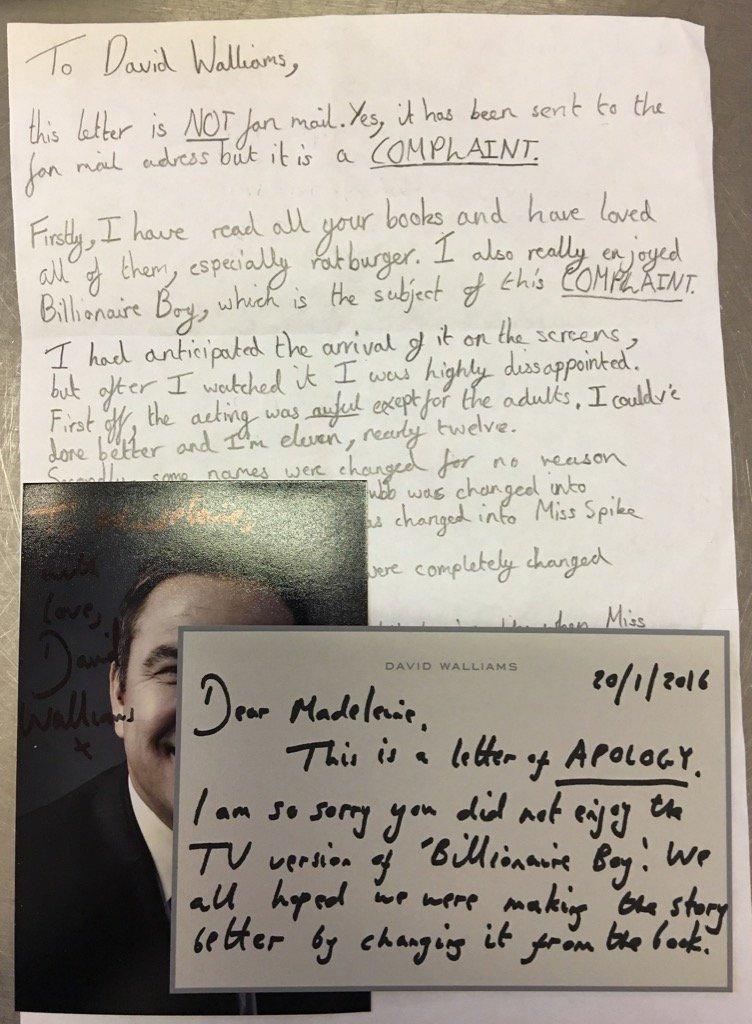 To David Walliams,
this letter is NOT fan mail. Yes, it has been sent to the
fan mail adress but it is a COMPLAINT.
Firstly, I have read all your books and have loved
all of them, especially ratburger. I also really enjoyed
Billionaire Boy, which is the subject of this COMPLAINT.
I had anticipated the arrival of it on the screens,
but after I watched it I was highly dissappointed.
First off, the acting was awful except for the adults. I could've
done better and I'm eleven, nearly twelve.
Secondly some names were changed for no reason
was changed into
changed into Miss Spike
were completely changed
when Miss
To Madeleine,
with
love,
David
Walliams
x
DAVID WALLIAMS
20/1/2016
Dear Madeleine,
This is a letter of APOLOGY.
I am so sorry you did not enjoy the
TV version of 'Billionaire Boy'. We
all hoped we were making the story
better by changing it from the book.